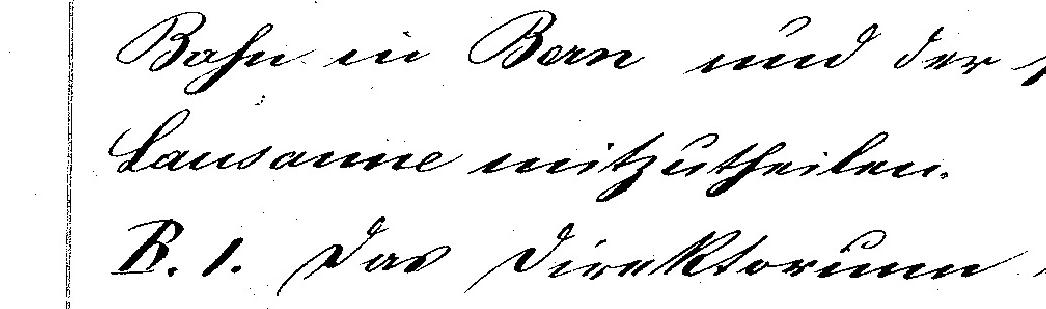 Bahn in Bern und der
Lausanne mitzutheilen.
B. 1. Das Direktorium